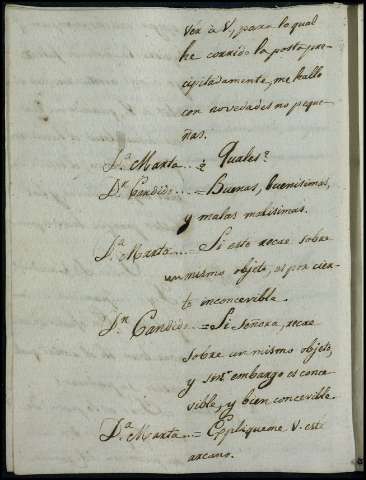 ver à V, para lo qual
he corrido la posta pre-
cipitadamente, me hallo
con novedades no peque-
ñas.
D.ª Marta... ¿ Quales?
D.n Candido... = Buenas, buenisimas,
y malas malisimas.
D.ª Marta... Si esto recae sobre
un mismo objeto, es por cier-
to inconcevible.
D.n Candido... = Si Señora, recae
sobre un mismo objeto,
y sin embargo es conce-
vible, y bien concevible.
D.ª Marta... = Expliqueme V. este
arcano.